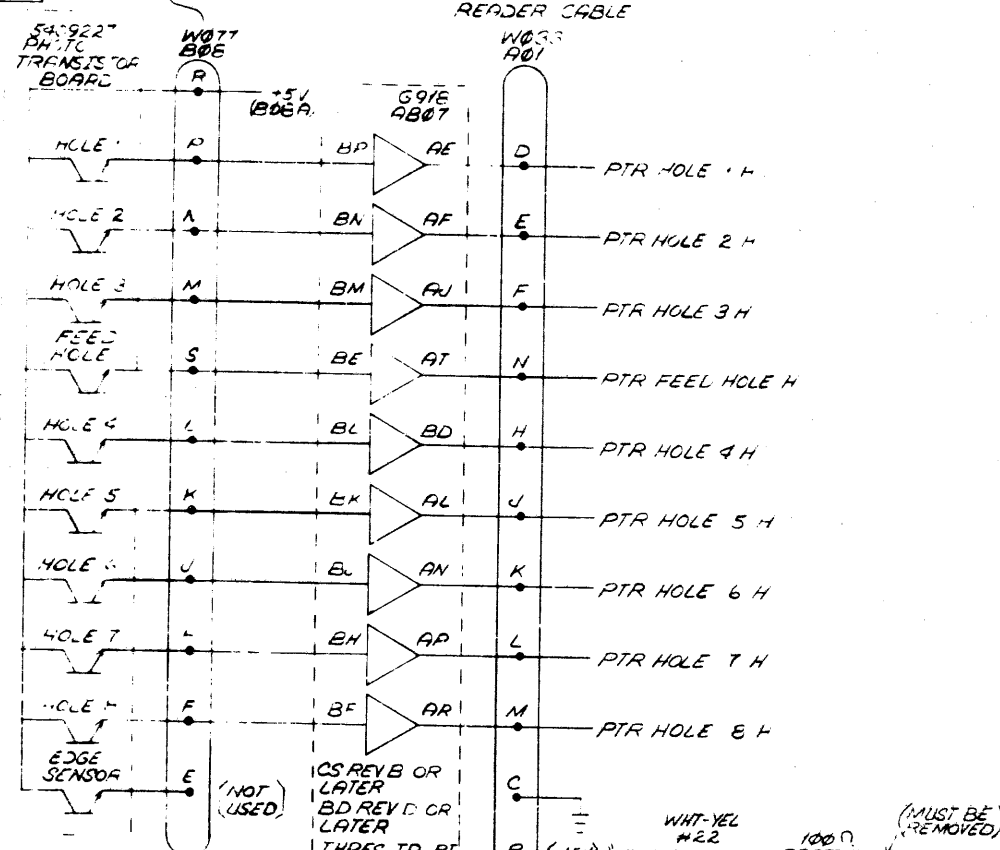 READER CABLE
BOARD
W077
B08
R
+5V
G918
AB07
W033
A01
HOLE
P
BP
AE
D
PTR HOLE H
HOLE 2
N
BN
AF
E
PTR HOLE 2 H
HOLE 3
M
BM
AJ
F
PTR HOLE 3 H
FEED
HOLE
S
BE
AT
N
PTR FEED HOLE H
HOLE 4
L
BL
BD
H
PTR HOLE 4 H
HOLE 5
K
BK
AL
J
PTR HOLE 5 H
HOLE
J
AN
K
PTR HOLE 6 H
HOLE 7
BH
AP
L
PTR HOLE 7 H
HOLE
F
BF
AR
M
PTR HOLE 8 H
EDGE
SENSOR
E
(NOT
USED)
CS REV B OR
LATER
BD REV D OR
LATER
C
WHT-YEL
#22
100Ω
(MUST BE
REMOVED)